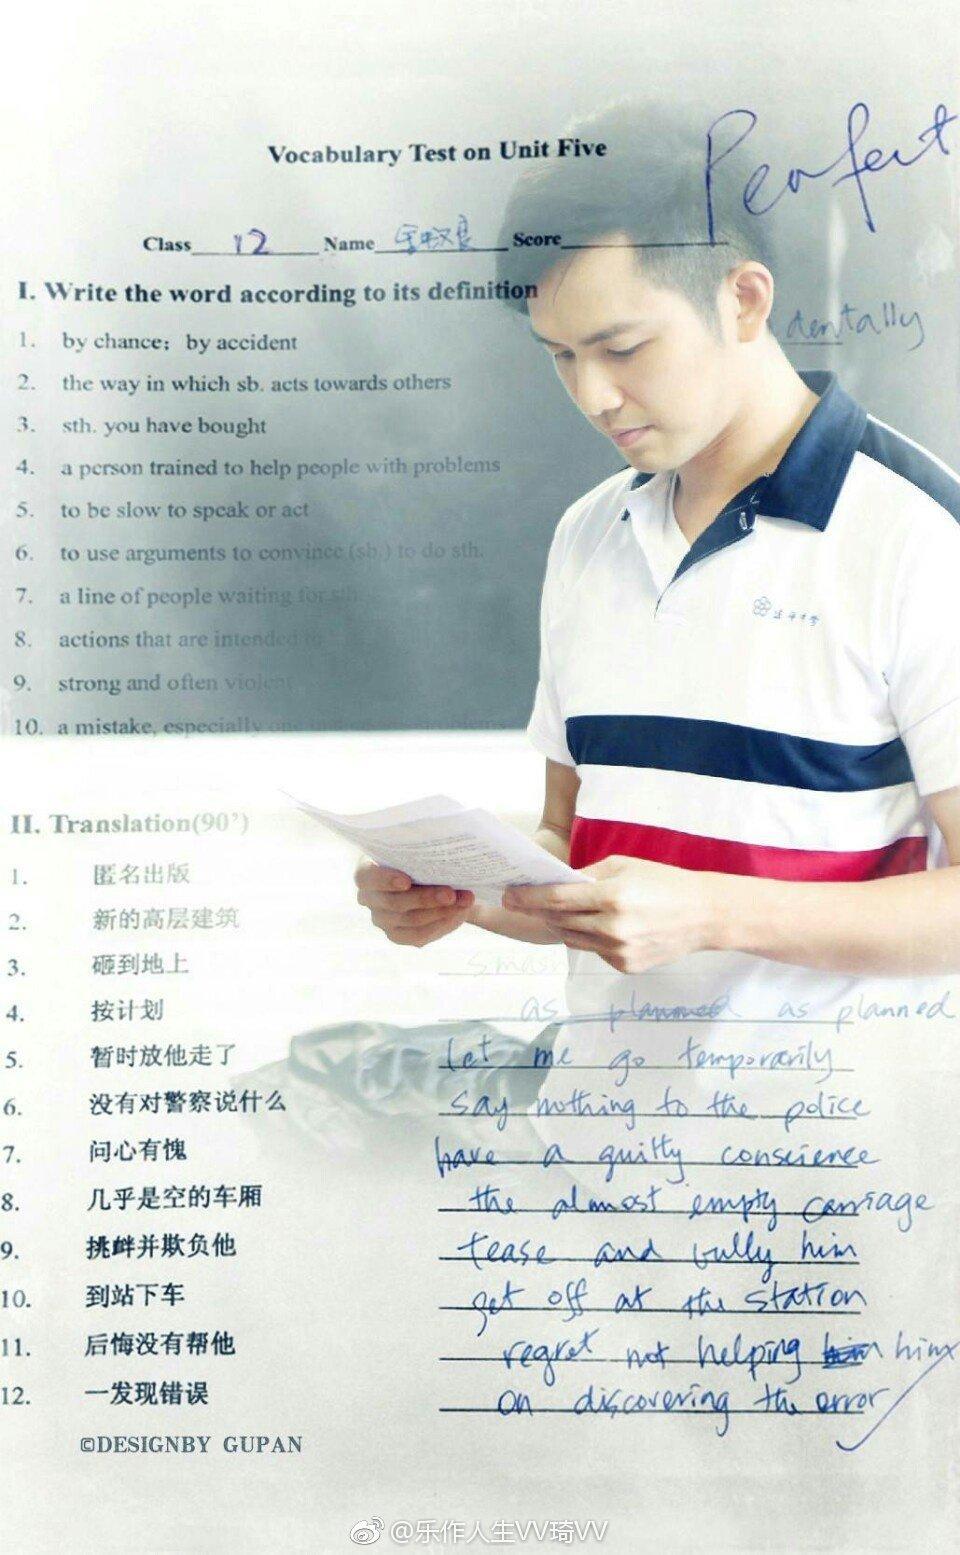 Perfect
Vocabulary Test on Unit Five
Class 12 Name Score
I. Write the word according to its definition
1. by chance; by accident dentally
2. the way in which sb. acts towards others
3. sth. you have bought
4. a person trained to help people with problems
5. to be slow to speak or act
6. to use arguments to convince (sb.) to do sth.
7. a line of people waiting for sth.
8. actions that are intended to
9. strong and often violent
10. a mistake, especially one
II. Translation(90')
1. 匿名出版
2. 新的高层建筑
3. 砸到地上 smash
4. 按计划 as planned as planned
5. 暂时放他走了 let me go temporarily
6. 没有对警察说什么 say nothing to the police
7. 问心有愧 have a guilty conscience
8. 几乎是空的车厢 the almost empty carriage
9. 挑衅并欺负他 tease and bully him
10. 到站下车 get off at the station
11. 后悔没有帮他 regret not helping him him
12. 一发现错误 on discovering the error
©DESIGNBY GUPAN
@乐作人生VV琦VV